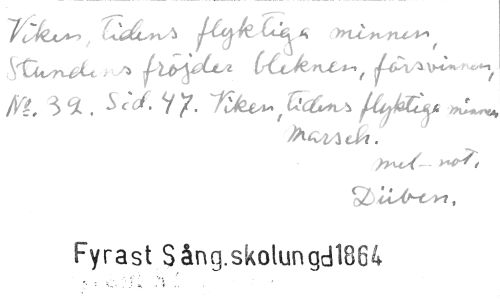 Viken, tidens flyktiga minnen,
Stundens fröjder bleknen, försvinnen,
No. 39. Sid. 47. Viken, tidens flyktiga minnen
Marsch.
mel-not.
Düben.
Fyrast Sång.skolungd1864